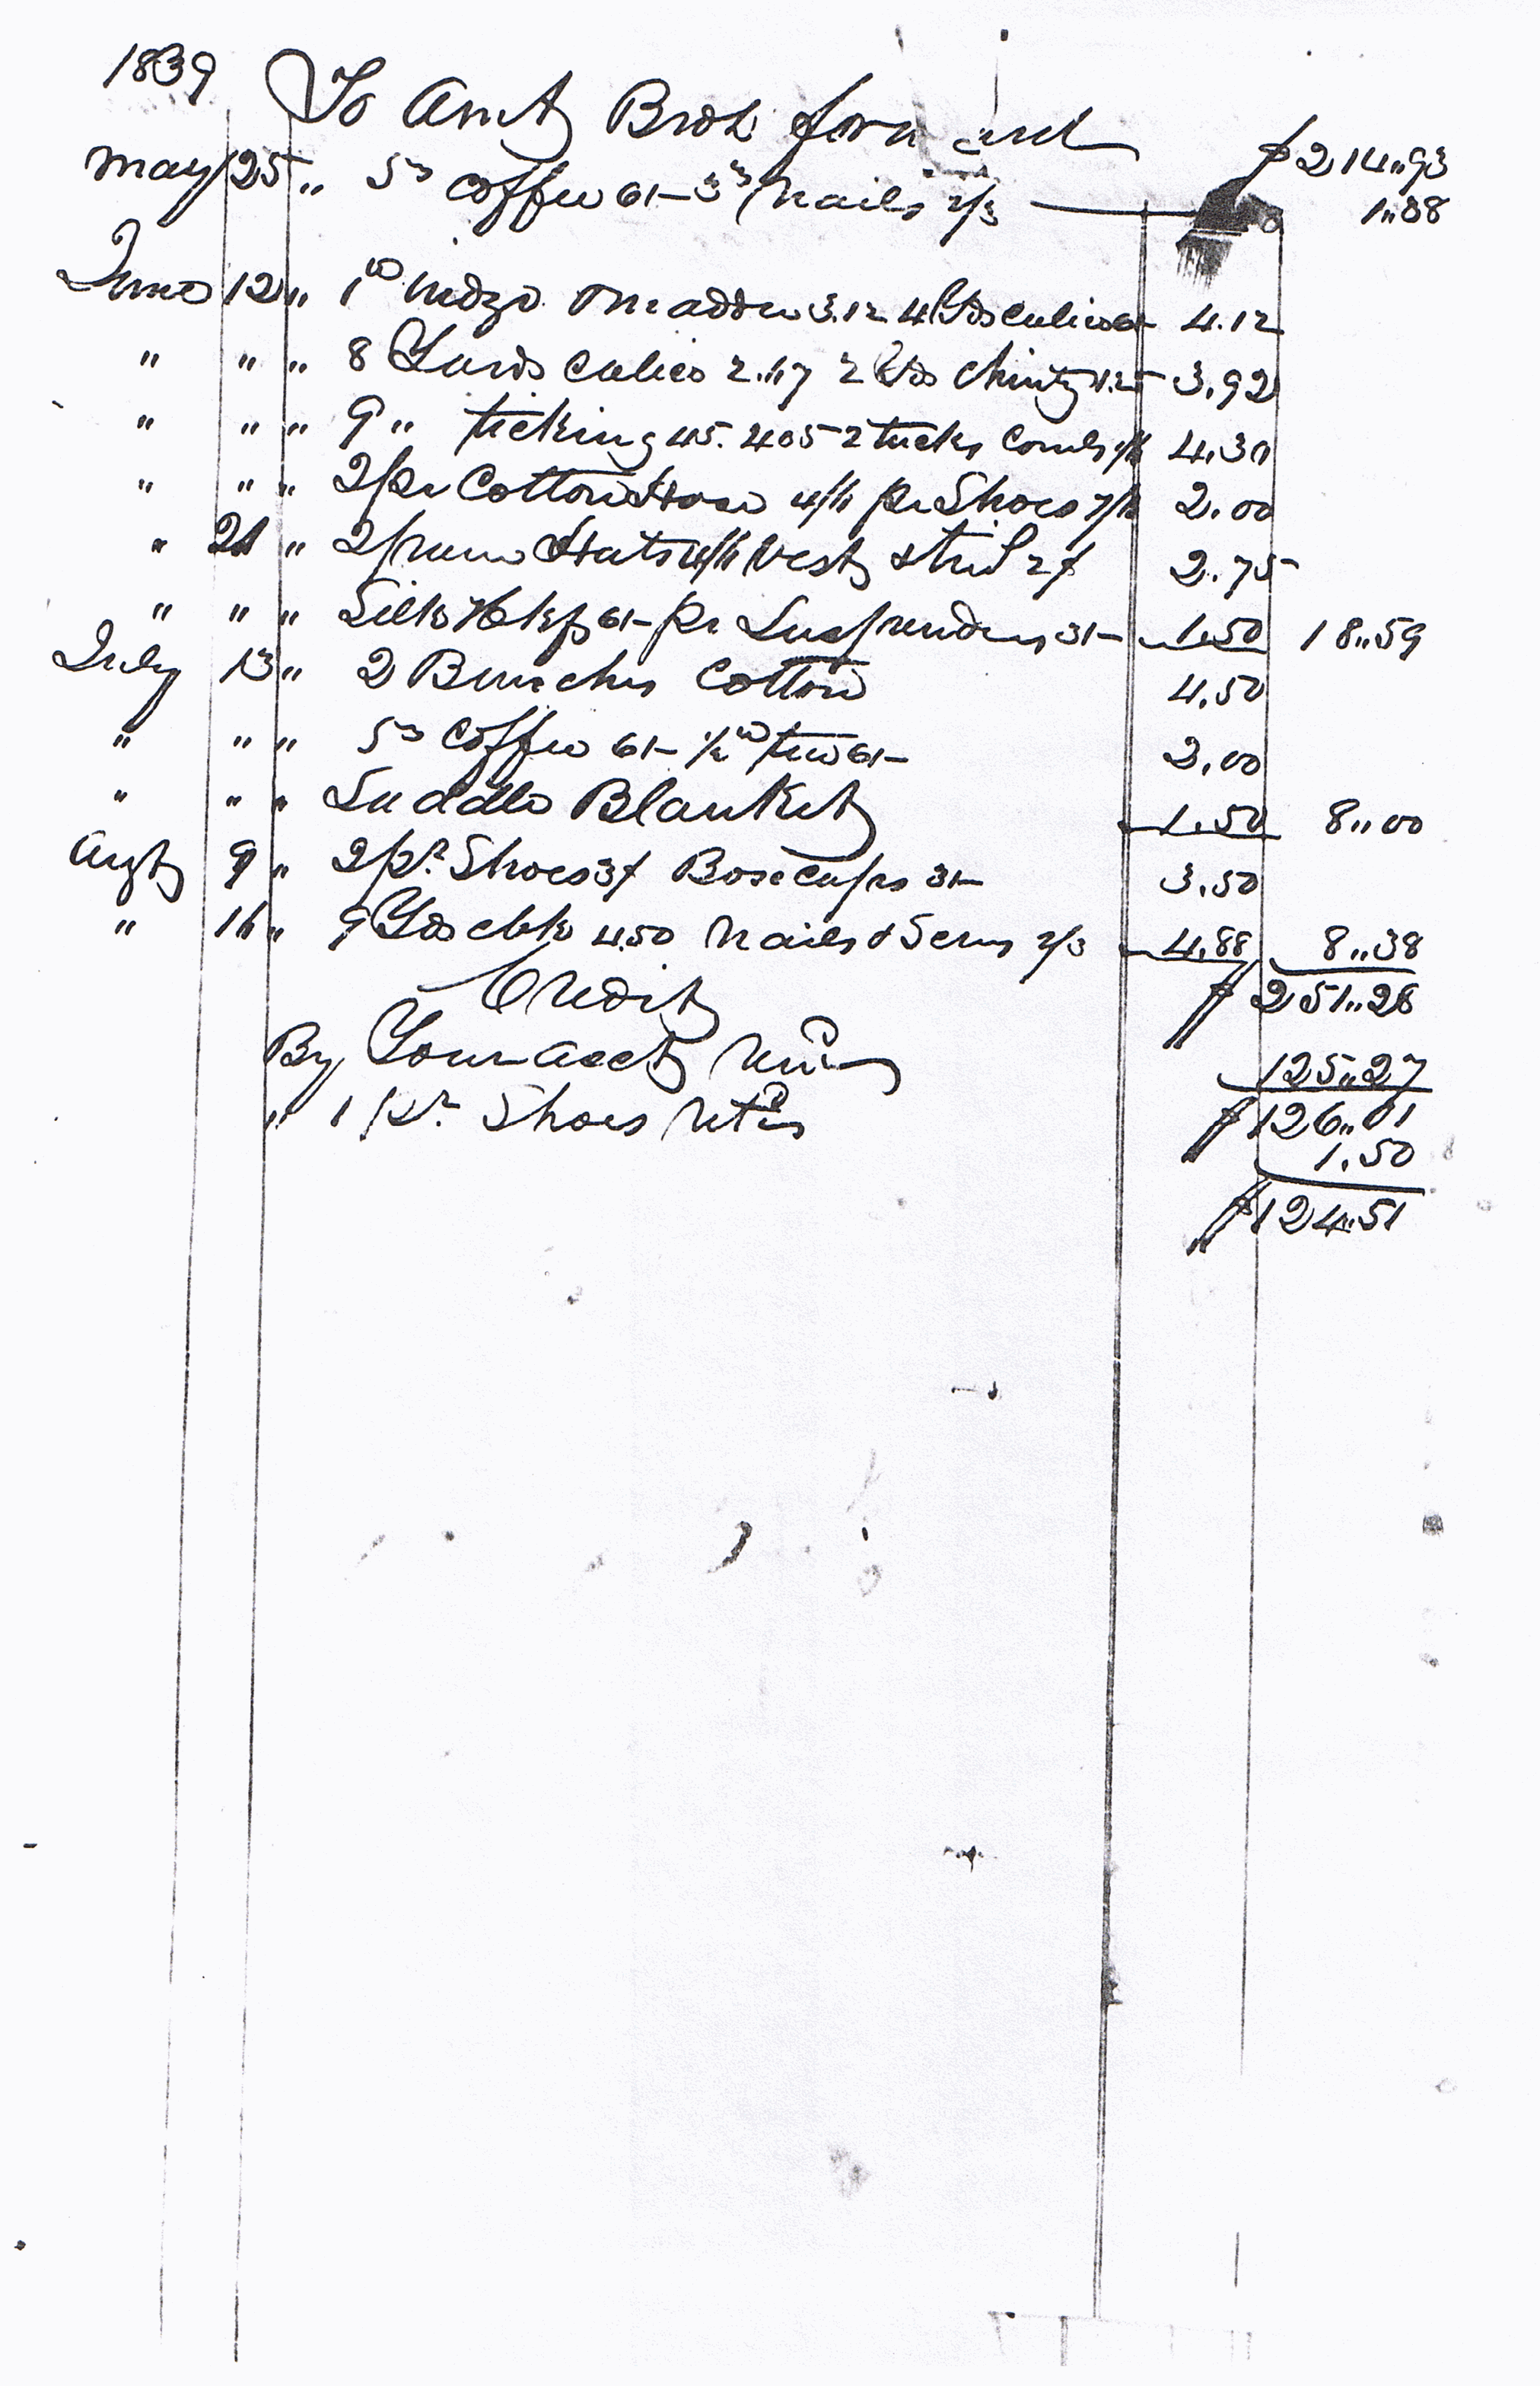 1839 To Amt Brot forward $214"93
May 25 " 5 lb coffee 6/- 3 lb Nails 2/3 1"88
June 12 " 1 lb Indgo & madder 3.12 4 Yds Calico 6/- 4.12
" " " 8 Yards Calico 2.67 2 Yds Chintz 1.25 3.92
" " " 9 " ticking 45. 405 2 tucks Combs 4.30
" " " 2 pr Cotton Hose 4/6 pr Shoes 7/6 2.00
" 21 " 2 Hats 4/6 Vest & 2.75
" " " Silk Hkf 6/- pr Suspenders 3/- 1.50 18"59
July 13 " 2 Bunches Cotton 4.50
" " " 5 lb coffee 6/- 1/2 lb tea 6/- 2.00
" " " Saddle Blanket 1.50 8"00
Augt 9 " 2 pr. Shoes 3$ Box caps 3/- 3.50
" 16 " 9 Yds 4.50 Nails & 2/3 4.88 8"38
Credit $251"28
By Your acct 125"27
$126"01
" 1 pr. Shoes 1.50
$124"51